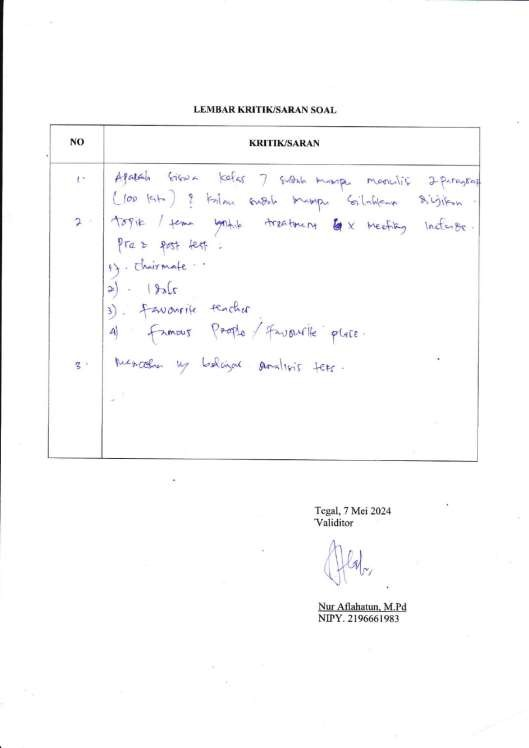 LEMBAR KRITIK/SARAN SOAL
NO
KRITIK/SARAN
1.
Apakah siswa kelas 7 sudah mampu menulis 2 paragrap
(100 kata) ? Kalau sudah mampu silahkan diujikan.
2.
Topik / tema untuk treatment 6 x meeting include
Pre & post test.
1). Chairmate.
2). Idols
3). Favourite teacher
4) Famous People / Favourite place.
3.
Mencoba belajar analisis teks.
Tegal, 7 Mei 2024
Validitor
Nur Aflahatun, M.Pd
NIPY. 2196661983